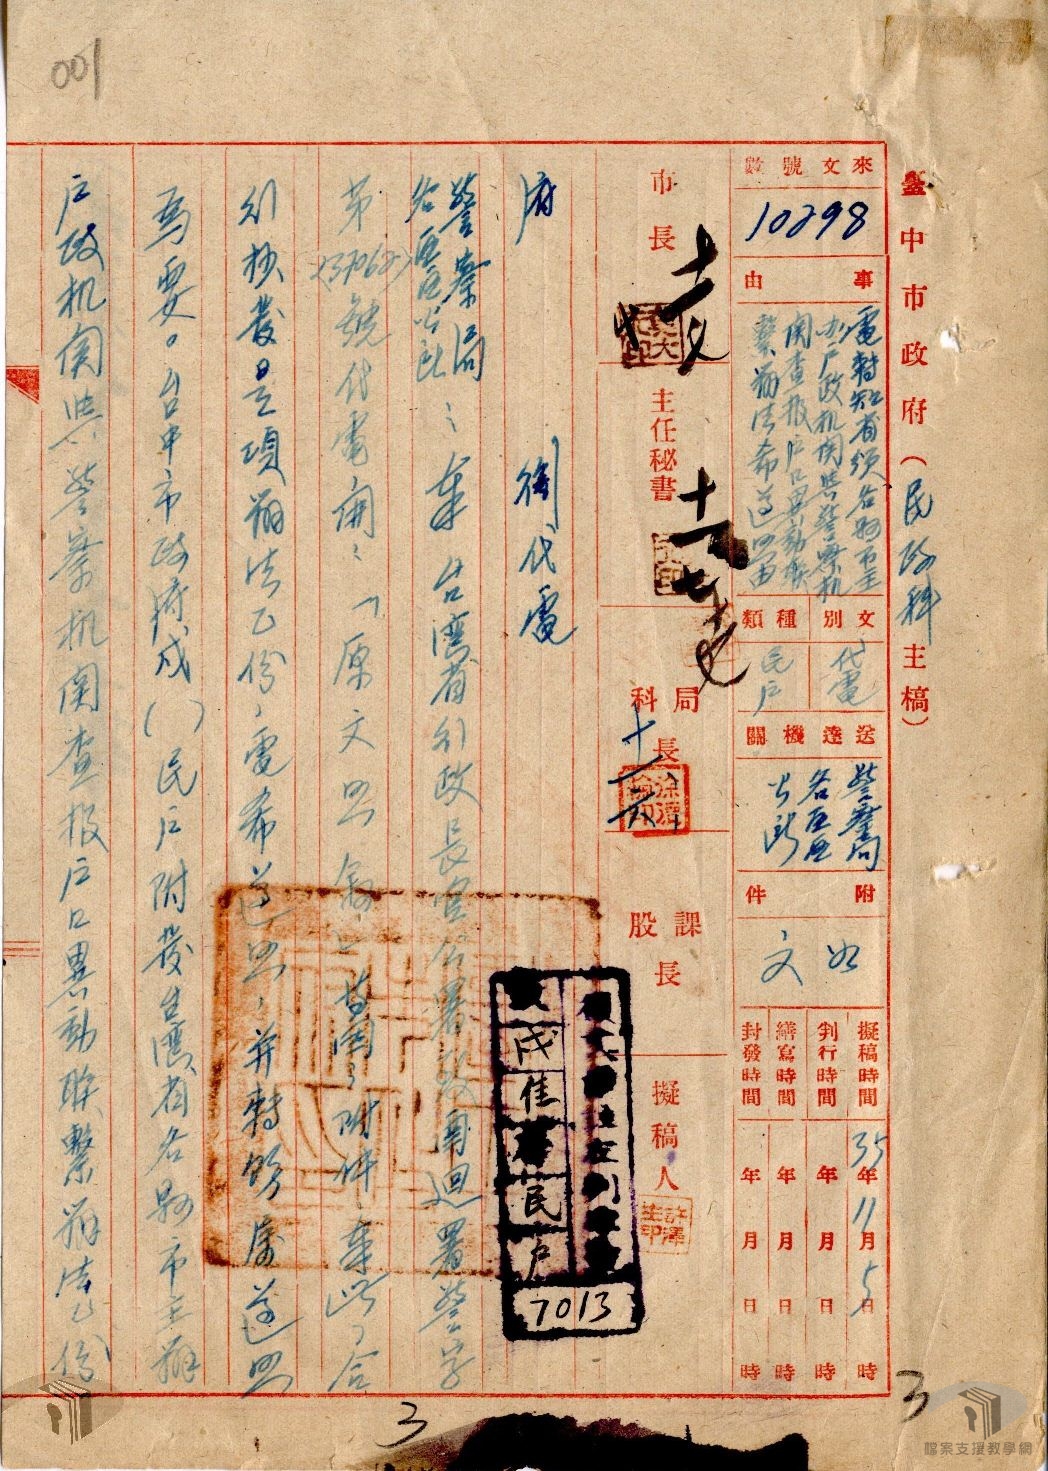 001
臺中市政府(民政科主稿)
來文號數
10298
事由
電轉知省頒各縣市主
办户政机関與警察机
関查报户口異動聯
繫辦法希遵照由
文別
代電
種類
民户
送達機關
警察局
各區區
公所
附件
如文
擬稿時間 35年11月5日 時
判行時間 年 月 日 時
繕寫時間 年 月 日 時
封發時間 年 月 日 時
市長
主任秘書
局科長
課股長
擬稿人
許澤
生印
府 衔代電
戌 佳 民 户
7013
警察局
各區區公所
:奉 台灣省行政長官公署 署警字
第 號代電開:「原文照叙」等因,附件,奉此,合
行抄發是項辦法乙份,電希遵照,并轉飭屬遵照
為要。台中市政府戌( )民户附發台灣省各縣市主辦
户政机関與警察机関查报户口異動聯繫辦法乙份
3
3
檔案支援教學網